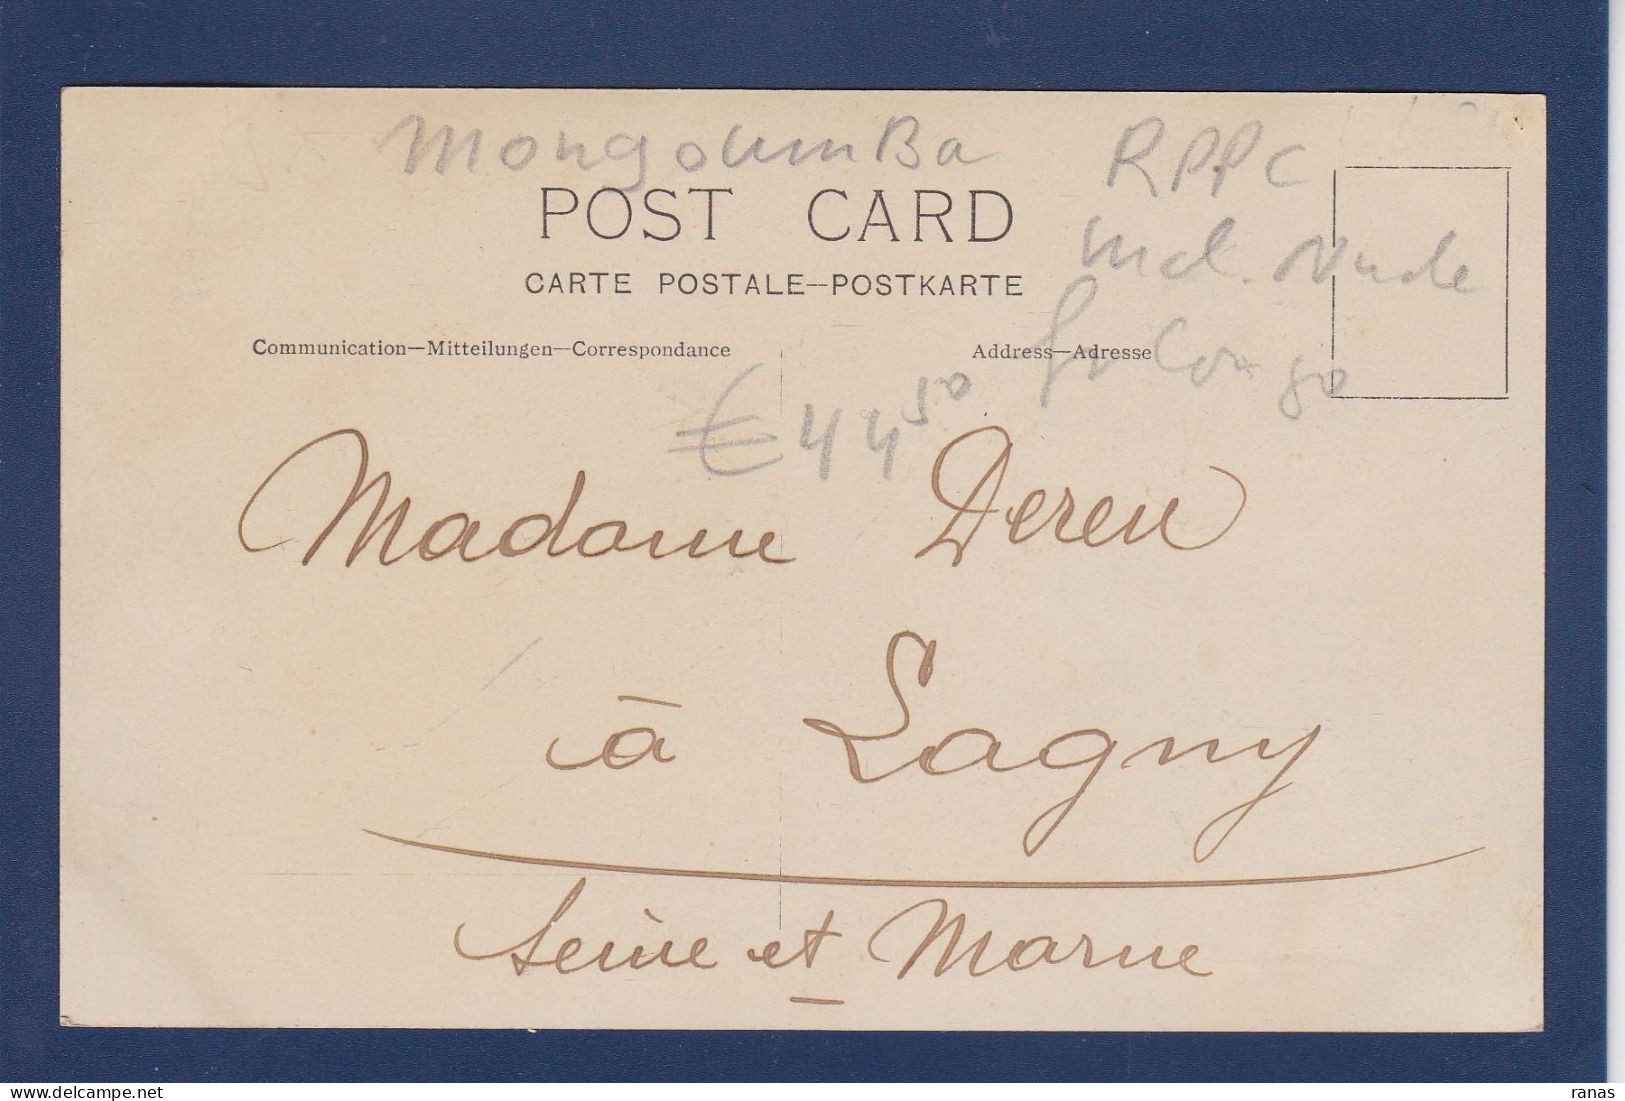 MongoumBa
RPPC
POST CARD
Nude
CARTE POSTALE—POSTKARTE
Communication—Mitteilungen—Correspondance
Address—Adresse
Fr Congo
€ 44 50
Madame Deren
à Lagny
Seine et Marne
ranas